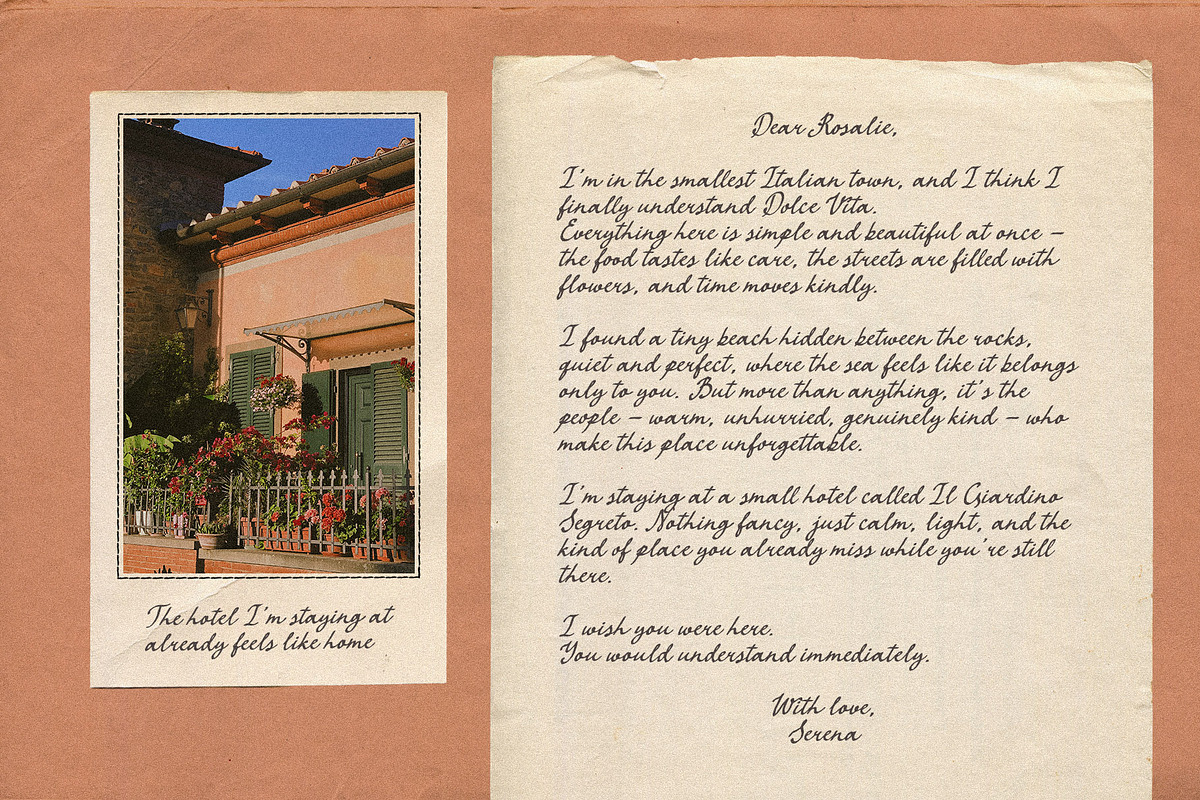 The hotel I'm staying at
already feels like home
Dear Rosalie,
I'm in the smallest Italian town, and I think I
finally understand Dolce Vita.
Everything here is simple and beautiful at once –
the food tastes like care, the streets are filled with
flowers, and time moves kindly.
I found a tiny beach hidden between the rocks,
quiet and perfect, where the sea feels like it belongs
only to you. But more than anything, it's the
people – warm, unhurried, genuinely kind – who
make this place unforgettable.
I'm staying at a small hotel called Il Giardino
Segreto. Nothing fancy, just calm, light, and the
kind of place you already miss while you're still
there.
I wish you were here.
You would understand immediately.
With love,
Serena